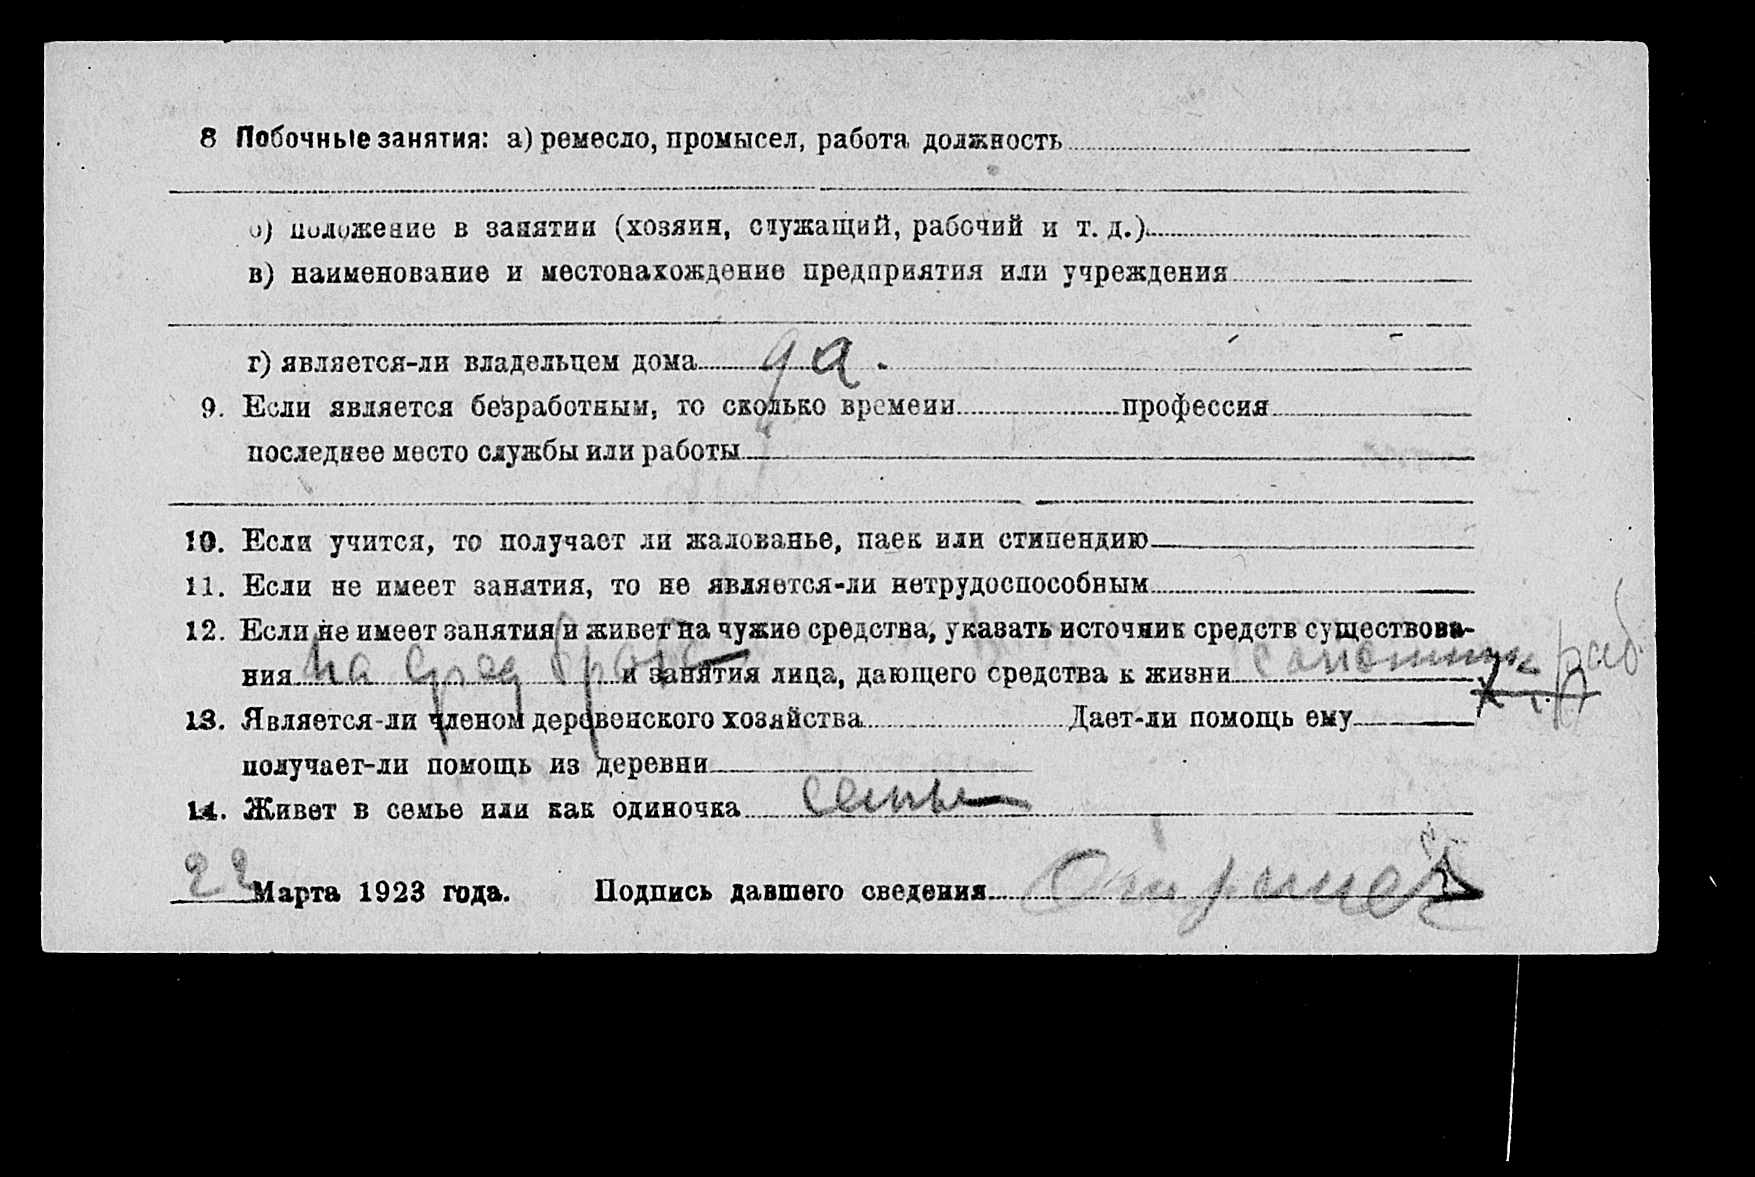 8 Побочные занятия: а) ремесло, промысел, работа должность
б) положение в занятии (хозяин, служащий, рабочий и т. д.)
в) наименование и местонахождение предприятия или учреждения
г) является-ли владельцем дома да.
9. Если является безработным, то сколько времени профессия
последнее место службы или работы
10. Если учится, то получает ли жалованье, паек или стипендию
11. Если не имеет занятия, то не является-ли нетрудоспособным
12. Если не имеет занятия и живет на чужие средства, указать источник средств существова-
ния на сред брата и занятия лица, дающего средства к жизни раб.
13. Является-ли членом деревенского хозяйства Дает-ли помощь ему
получает-ли помощь из деревни
14. Живет в семье или как одиночка семье
22 Марта 1923 года. Подпись давшего сведения